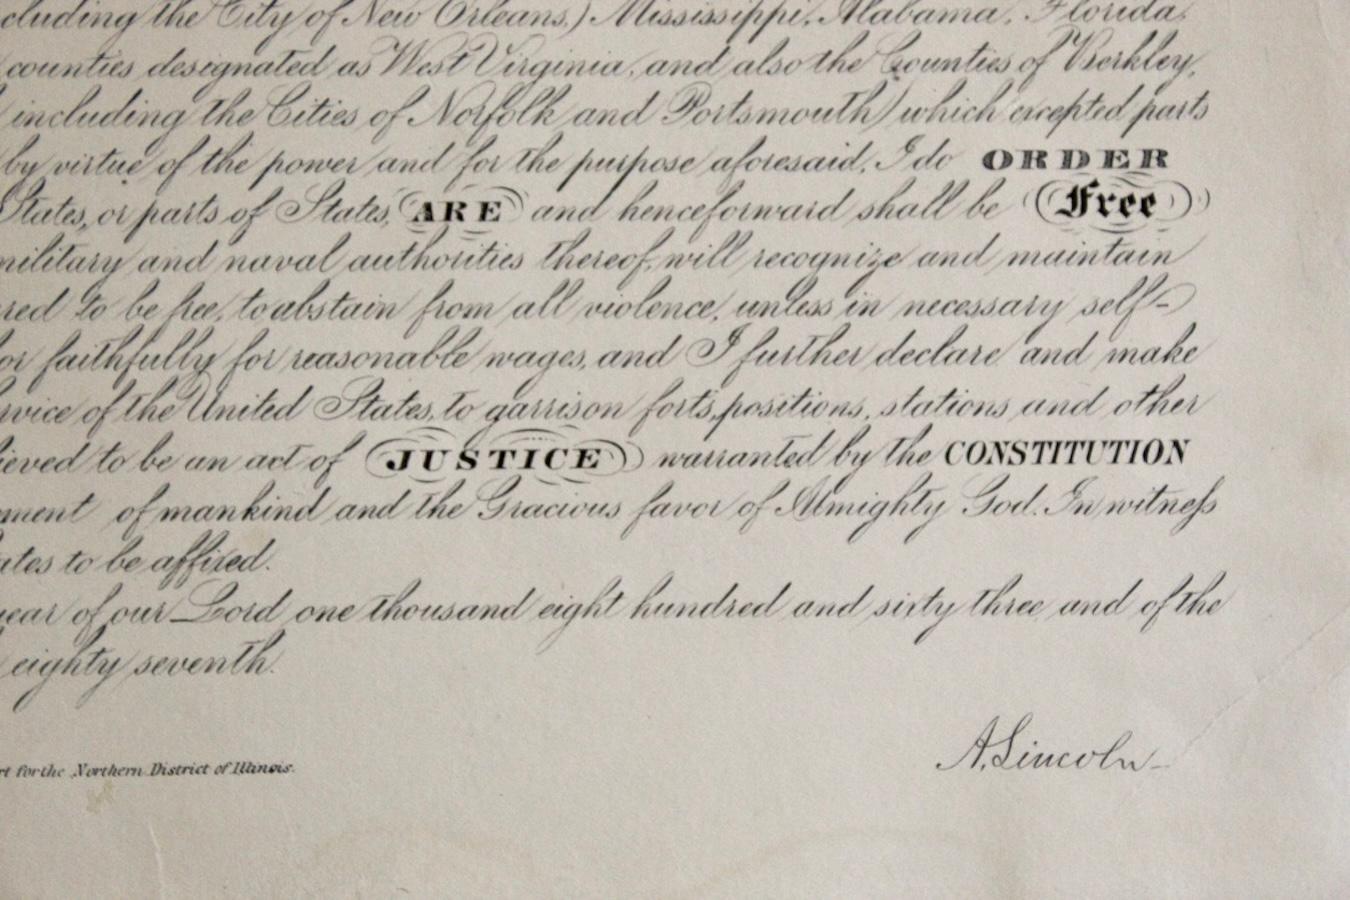 cluding the City of New Orleans,) Mississippi, Alabama, Florida,
counties designated as West Virginia, and also the Counties of Berkley,
including the Cities of Norfolk and Portsmouth) which excepted parts
by virtue of the power and for the purpose aforesaid, I do ORDER
States, or parts of States, ARE and henceforward shall be Free
military and naval authorities thereof, will recognize and maintain
red to be free, to abstain from all violence, unless in necessary self-
or faithfully for reasonable wages, and I further declare and make
rvice of the United States, to garrison forts, positions, stations, and other
ieved to be an act of JUSTICE warranted by the CONSTITUTION
ment of mankind and the Gracious favor of Almighty God. In witness
ates to be affixed.
year of our Lord one thousand eight hundred and sixty three and of the
eighty seventh.
A. Lincoln
rt for the Northern District of Illinois.